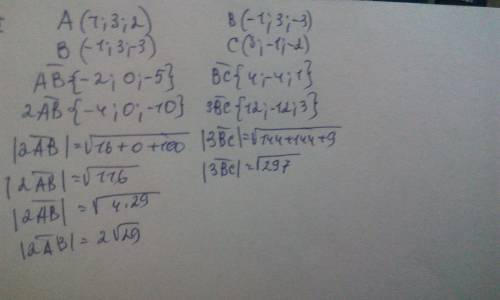 A (1; 3; 2)
B (-1; 3; -3)
AB{-2; 0; -5}
2AB{-4; 0; -10}
|2AB|=√16+0+100
|2AB|=√116
|2AB|=√4·29
|2AB|=2√29
B (-1; 3; -3)
C(3; -1; -2)
BC{4; -4; 1}
3BC{12; -12; 3}
|3BC|=√144+144+9
|3BC|=√297